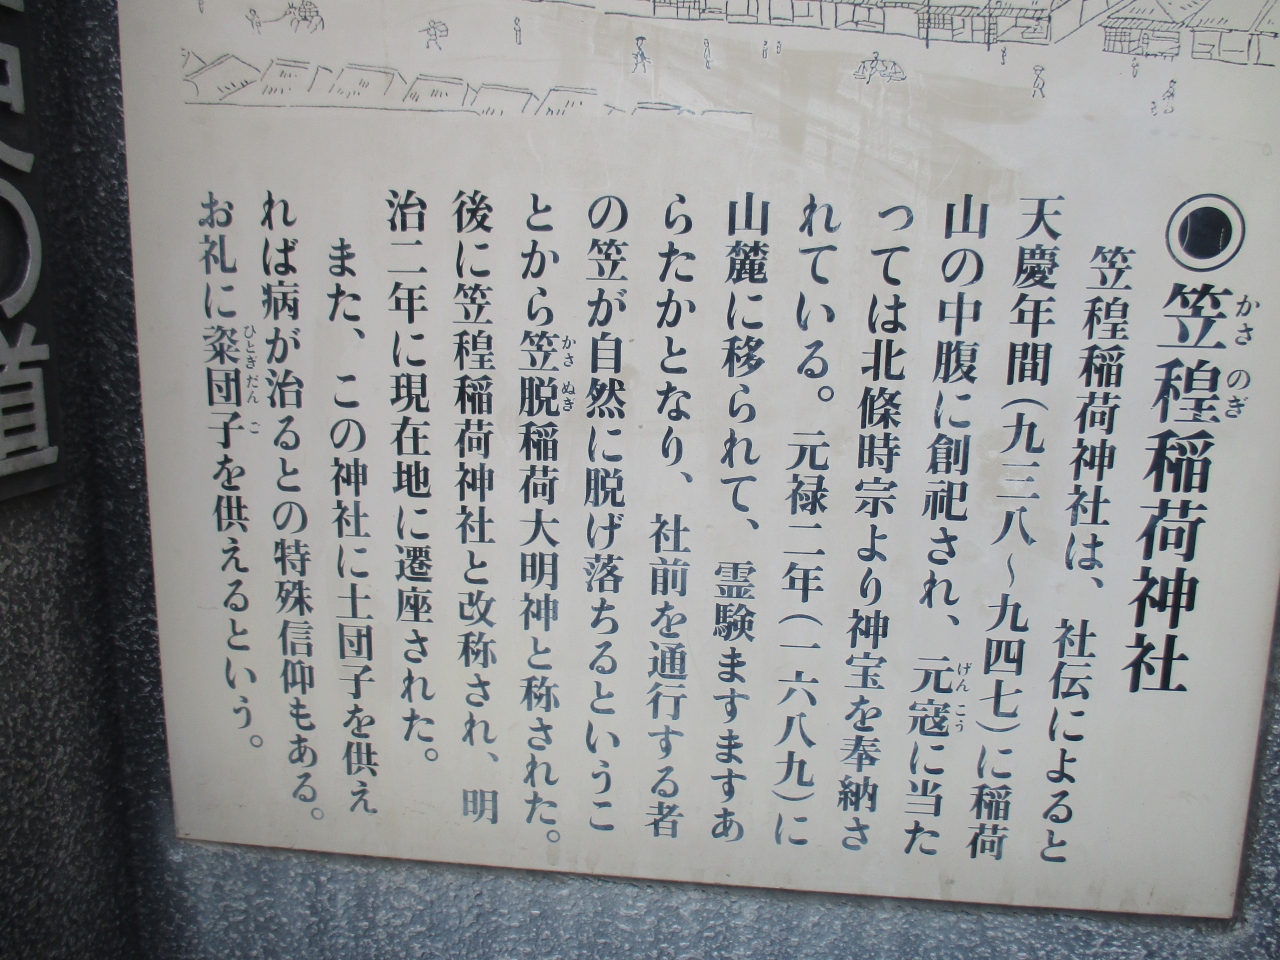 ◉笠䅣稲荷神社
かさ のぎ
笠䅣稲荷神社は、社伝によると
天慶年間(九三八~九四七)に稲荷
山の中腹に創祀され、元寇に当た
げんこう
っては北條時宗より神宝を奉納さ
れている。元禄二年(一六八九)に
山麓に移られて、霊験ますますあ
らたかとなり、社前を通行する者
の笠が自然に脱げ落ちるというこ
とから笠脱稲荷大明神と称された。
かさ ぬぎ
後に笠䅣稲荷神社と改称され、明
治二年に現在地に遷座された。
また、この神社に土団子を供え
れば病が治るとの特殊信仰もある。
お礼に粢団子を供えるという。
ひとぎだんご
の道